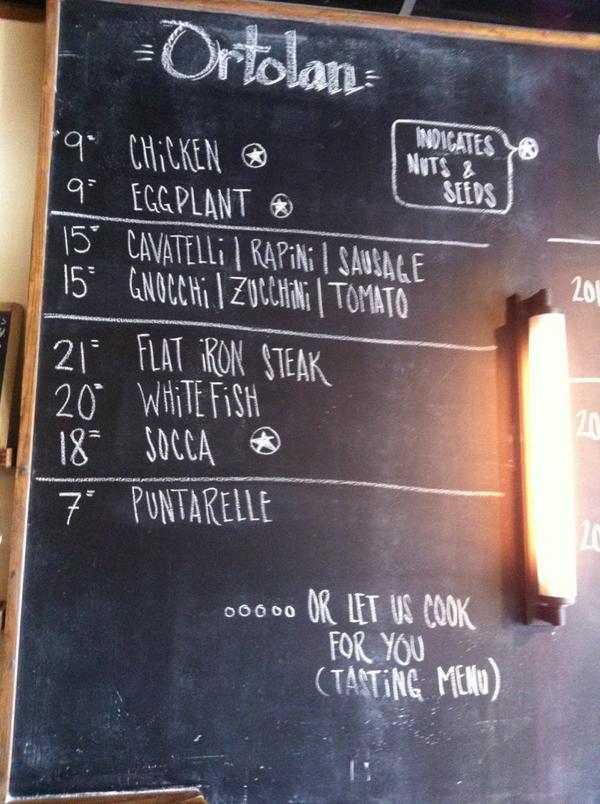 Ortolan
INDICATES
NUTS &
SEEDS
9= CHiCKEN
9= EGGPLANT
15= CAVATELLi | RAPiNi | SAUSAGE
15= GNOCCHi | ZUCCHiNi | TOMATO
21= FLAT iRON STEAK
20= WHiTEFiSH
18= SOCCA
7= PUNTARELLE
OR LET US COOK
FOR YOU
(TASTiNG MENU)
201
20
20